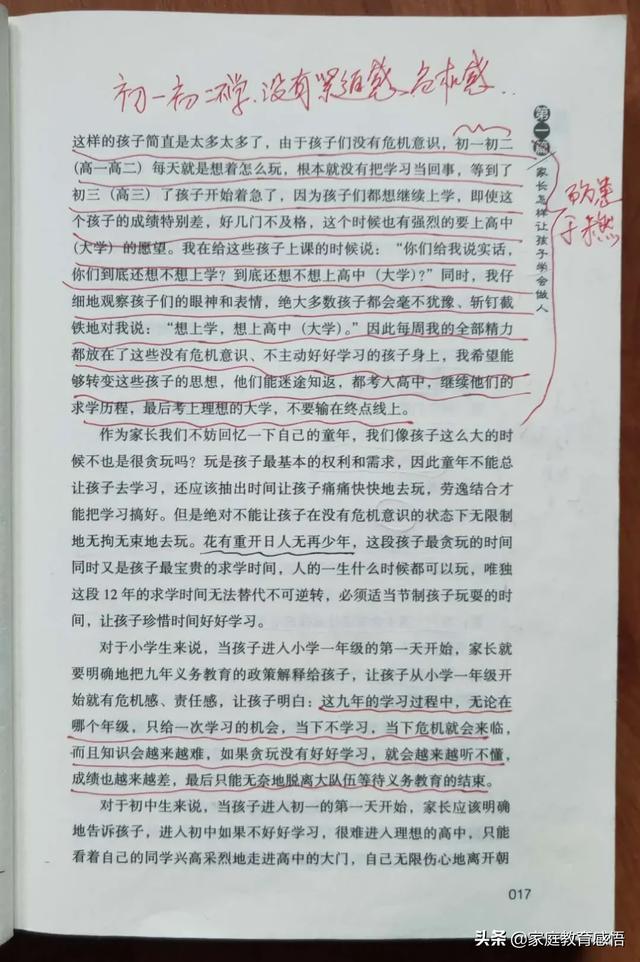 初一初二不学.没有紧迫感、危机感..
第一篇
家长怎样让孩子学会做人
防患
于未然
这样的孩子简直是太多太多了，由于孩子们没有危机意识，初一初二
(高一高二)每天就是想着怎么玩，根本就没有把学习当回事，等到了
初三(高三)了孩子开始着急了，因为孩子们都想继续上学，即使这
个孩子的成绩特别差，好几门不及格，这个时候也有强烈的要上高中
(大学)的愿望。我在给这些孩子上课的时候说：“你们给我说实话，
你们到底还想不想上学？到底还想不想上高中(大学)?”同时，我仔
细地观察孩子们的眼神和表情，绝大多数孩子都会毫不犹豫、斩钉截
铁地对我说：“想上学，想上高中(大学)。”因此每周我的全部精力
都放在了这些没有危机意识、不主动好好学习的孩子身上，我希望能
够转变这些孩子的思想，他们能迷途知返，都考入高中，继续他们的
求学历程，最后考上理想的大学，不要输在终点线上。
作为家长我们不妨回忆一下自己的童年，我们像孩子这么大的时
候不也是很贪玩吗？玩是孩子最基本的权利和需求，因此童年不能总
让孩子去学习，还应该抽出时间让孩子痛痛快快地去玩，劳逸结合才
能把学习搞好。但是绝对不能让孩子在没有危机意识的状态下无限制
地无拘无束地去玩。花有重开日人无再少年，这段孩子最贪玩的时间
同时又是孩子最宝贵的求学时间，人的一生什么时候都可以玩，唯独
这段12年的求学时间无法替代不可逆转，必须适当节制孩子玩耍的时
间，让孩子珍惜时间好好学习。
对于小学生来说，当孩子进入小学一年级的第一天开始，家长就
要明确地把九年义务教育的政策解释给孩子，让孩子从小学一年级开
始就有危机感、责任感，让孩子明白：这九年的学习过程中，无论在
哪个年级，只给一次学习的机会，当下不学习，当下危机就会来临，
而且知识会越来越难，如果贪玩没有好好学习，就会越来越听不懂，
成绩也越来越差，最后只能无奈地脱离大队伍等待义务教育的结束。
对于初中生来说，当孩子进入初一的第一天开始，家长应该明确
地告诉孩子，进入初中如果不好好学习，很难进入理想的高中，只能
看着自己的同学兴高采烈地走进高中的大门，自己无限伤心地离开朝
017
头条 @家庭教育感悟